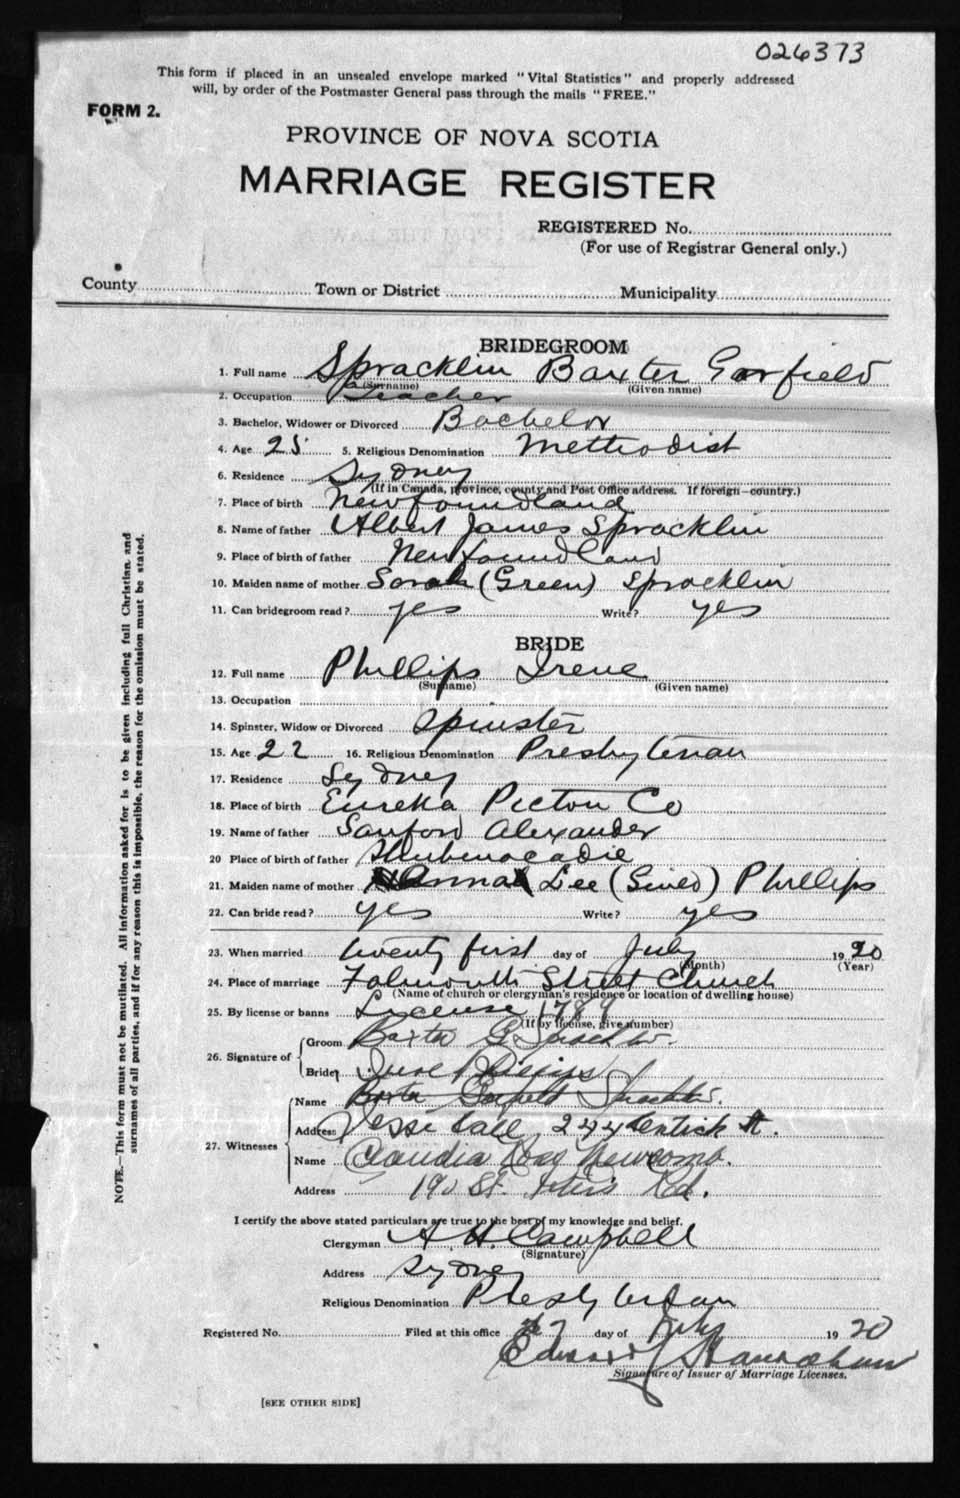 026373
This form if placed in an unsealed envelope marked "Vital Statistics" and properly addressed
will, by order of the Postmaster General pass through the mails "FREE."
FORM 2.
PROVINCE OF NOVA SCOTIA
MARRIAGE REGISTER
REGISTERED No.
(For use of Registrar General only.)
County Town or District Municipality
BRIDEGROOM
1. Full name Spracklin Baxter Garfield
(Surname) (Given name)
2. Occupation Teacher
3. Bachelor, Widower or Divorced Bachelor
4. Age 25 5. Religious Denomination Methodist
6. Residence Sydney
(If in Canada, province, county and Post Office address. If foreign—country.)
7. Place of birth Newfoundland
8. Name of father Albert James Spracklin
9. Place of birth of father Newfoundland
10. Maiden name of mother Sarah (Green) Spracklin
11. Can bridegroom read? yes Write? yes
BRIDE
12. Full name Phillips Irene
(Surname) (Given name)
13. Occupation
14. Spinster, Widow or Divorced Spinster
15. Age 22 16. Religious Denomination Presbyterian
17. Residence Sydney
18. Place of birth Eureka Pictou Co
19. Name of father Sanford Alexander
20 Place of birth of father Shubenacadie
21. Maiden name of mother Anna Lee Phillips
22. Can bride read? yes Write? yes
23. When married twenty first day of July 1920
(Month) (Year)
24. Place of marriage Falmouth Street Church
(Name of church or clergyman's residence or location of dwelling house)
25. By license or banns License 1789
(If by license, give number)
26. Signature of
Groom Baxter G Spracklin.
Bride Irene Phillips
27. Witnesses
Name Baxter Garfield Spracklin.
Address Jessie 244 St.
Name Claudia Newcomb.
Address 190 St. Peter's Rd.
I certify the above stated particulars are true to the best of my knowledge and belief.
Clergyman A. H. Campbell
(Signature)
Address Sydney
Religious Denomination Presbyterian
Registered No. Filed at this office day of July 1920
Edward J Hanrahan
Signature of Issuer of Marriage Licenses.
[SEE OTHER SIDE]
NOTE.—This form must not be mutilated. All information asked for is to be given including full Christian and
surnames of all parties, and if for any reason this is impossible, the reason for the omission must be stated.